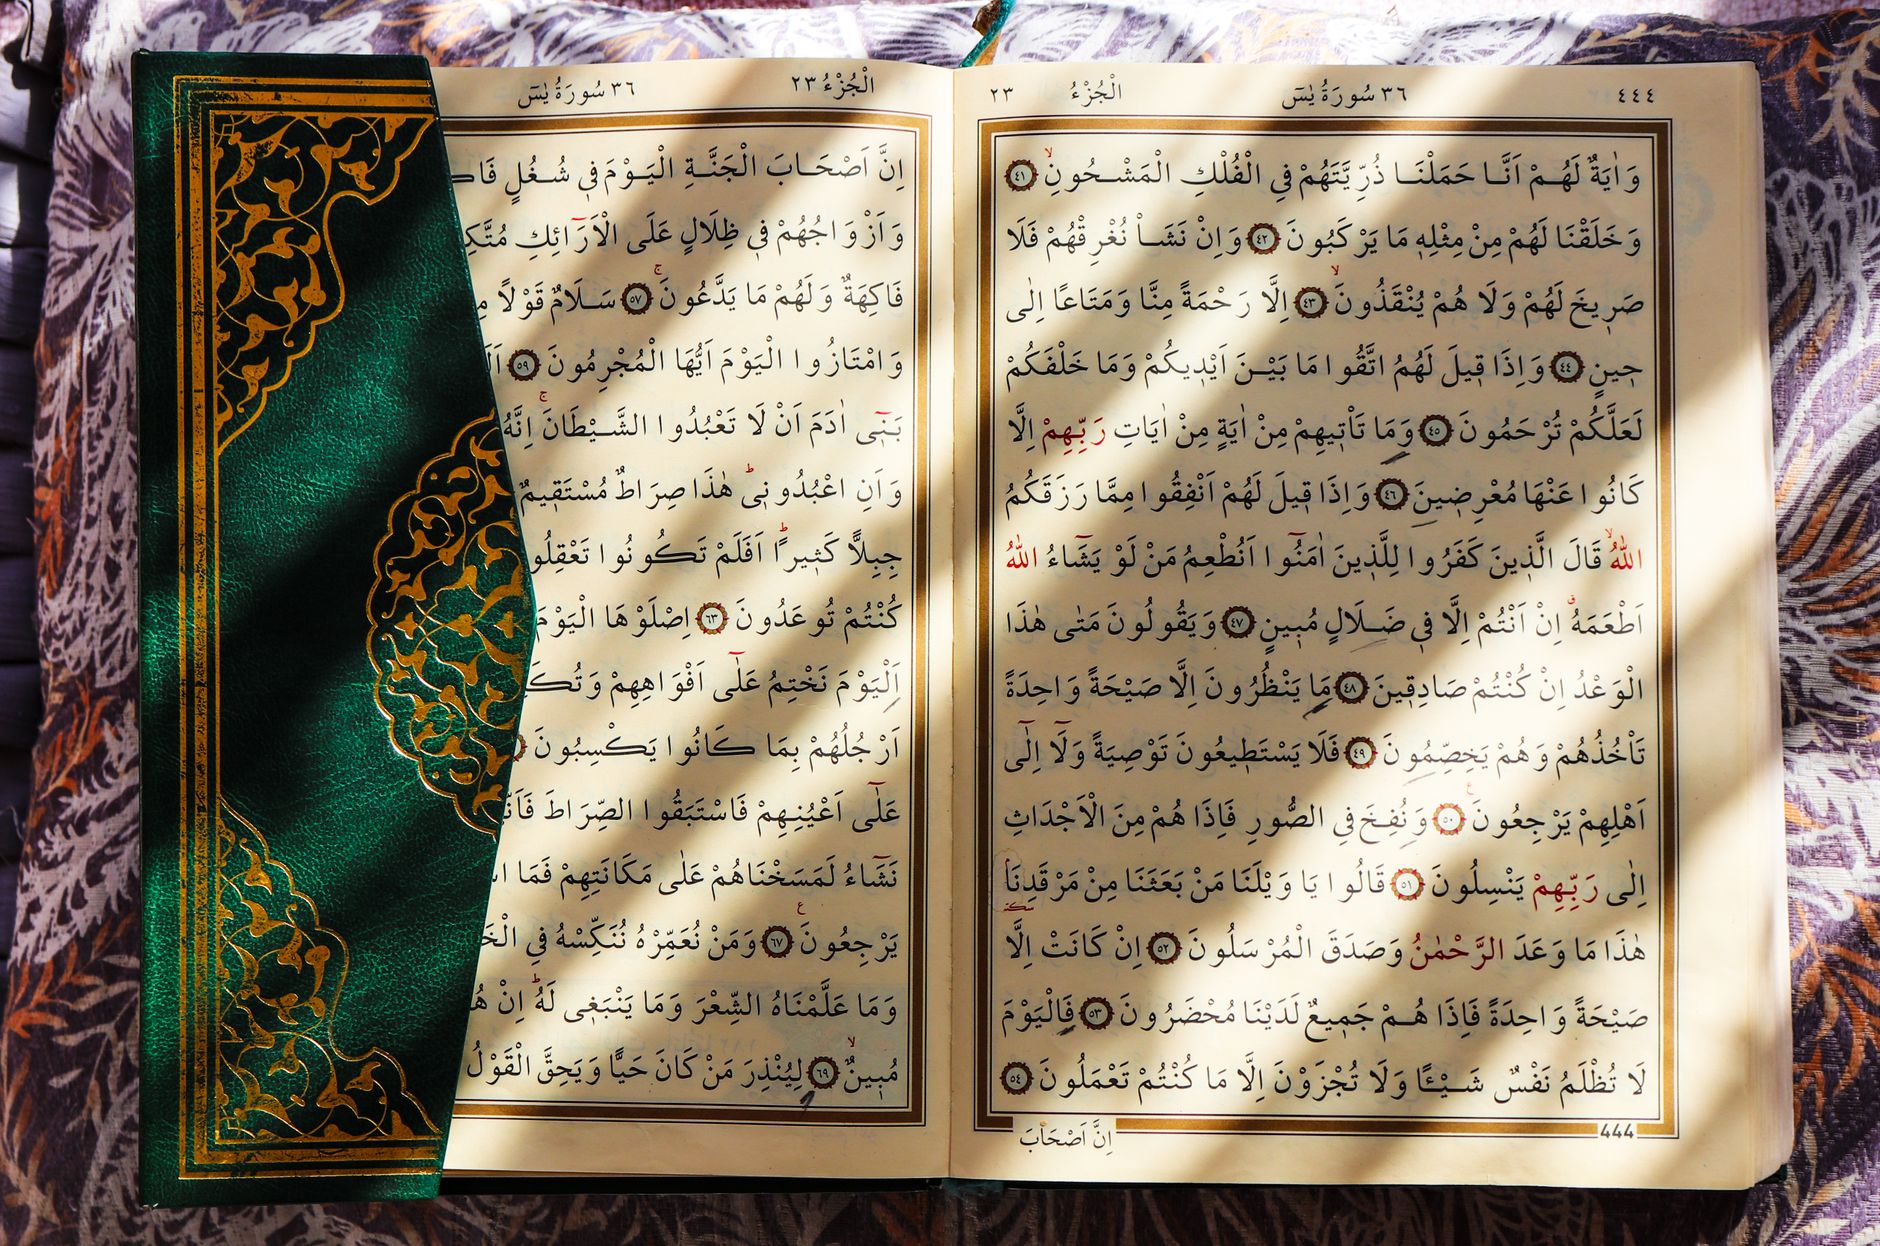 ٤٤٤ ٣٦ سُورَةُ يٰسٓ الْجُزْءُ ٢٣
وَاٰيَةٌ لَهُمْ اَنَّا حَمَلْنَا ذُرِّيَّتَهُمْ فِي الْفُلْكِ الْمَشْحُونِۙ ٤١
وَخَلَقْنَا لَهُمْ مِنْ مِثْلِه۪ مَا يَرْكَبُونَ ٤٢ وَاِنْ نَشَأْ نُغْرِقْهُمْ فَلَا
صَر۪يخَ لَهُمْ وَلَا هُمْ يُنْقَذُونَۙ ٤٣ اِلَّا رَحْمَةً مِنَّا وَمَتَاعًا اِلٰى
ح۪ينٍ ٤٤ وَاِذَا ق۪يلَ لَهُمُ اتَّقُوا مَا بَيْنَ اَيْد۪يكُمْ وَمَا خَلْفَكُمْ
لَعَلَّكُمْ تُرْحَمُونَ ٤٥ وَمَا تَأْت۪يهِمْ مِنْ اٰيَةٍ مِنْ اٰيَاتِ رَبِّهِمْ اِلَّا
كَانُوا عَنْهَا مُعْرِض۪ينَ ٤٦ وَاِذَا ق۪يلَ لَهُمْ اَنْفِقُوا مِمَّا رَزَقَكُمُ
اللّٰهُۙ قَالَ الَّذ۪ينَ كَفَرُوا لِلَّذ۪ينَ اٰمَنُٓوا اَنُطْعِمُ مَنْ لَوْ يَشَٓاءُ اللّٰهُ
اَطْعَمَهُۗ اِنْ اَنْتُمْ اِلَّا ف۪ي ضَلَالٍ مُب۪ينٍ ٤٧ وَيَقُولُونَ مَتٰى هٰذَا
الْوَعْدُ اِنْ كُنْتُمْ صَادِق۪ينَ ٤٨ مَا يَنْظُرُونَ اِلَّا صَيْحَةً وَاحِدَةً
تَأْخُذُهُمْ وَهُمْ يَخِصِّمُونَ ٤٩ فَلَا يَسْتَط۪يعُونَ تَوْصِيَةً وَلَٓا اِلٰٓى
اَهْلِهِمْ يَرْجِعُونَ ٥٠ وَنُفِخَ فِي الصُّورِ فَاِذَا هُمْ مِنَ الْاَجْدَاثِ
اِلٰى رَبِّهِمْ يَنْسِلُونَ ٥١ قَالُوا يَا وَيْلَنَا مَنْ بَعَثَنَا مِنْ مَرْقَدِنَا
هٰذَا مَا وَعَدَ الرَّحْمٰنُ وَصَدَقَ الْمُرْسَلُونَ ٥٢ اِنْ كَانَتْ اِلَّا
صَيْحَةً وَاحِدَةً فَاِذَا هُمْ جَم۪يعٌ لَدَيْنَا مُحْضَرُونَ ٥٣ فَالْيَوْمَ
لَا تُظْلَمُ نَفْسٌ شَيْـًٔا وَلَا تُجْزَوْنَ اِلَّا مَا كُنْتُمْ تَعْمَلُونَ ٥٤
444
اِنَّ اَصْحَابَ
الْجُزْءُ ٢٣ ٣٦ سُورَةُ يٰسٓ
اِنَّ اَصْحَابَ الْجَنَّةِ الْيَوْمَ ف۪ي شُغُلٍ
وَاَزْوَاجُهُمْ ف۪ي ظِلَالٍ عَلَى الْاَرَٓائِكِ
فَاكِهَةٌ وَلَهُمْ مَا يَدَّعُونَۚ ٥٧ سَلَامٌ قَوْلًا
وَامْتَازُوا الْيَوْمَ اَيُّهَا الْمُجْرِمُونَ ٥٩
بَن۪ٓي اٰدَمَ اَنْ لَا تَعْبُدُوا الشَّيْطَانَۚ اِنَّهُ
وَاَنِ اعْبُدُون۪يۜ هٰذَا صِرَاطٌ مُسْتَق۪يمٌ
جِبِلًّا كَث۪يرًاۜ اَفَلَمْ تَكُونُوا
كُنْتُمْ تُوعَدُونَ ٦٣ اِصْلَوْهَا الْيَوْمَ
اَلْيَوْمَ نَخْتِمُ عَلٰٓى اَفْوَاهِهِمْ
اَرْجُلُهُمْ بِمَا كَانُوا يَكْسِبُونَ
عَلٰٓى اَعْيُنِهِمْ فَاسْتَبَقُوا الصِّرَاطَ
نَشَٓاءُ لَمَسَخْنَاهُمْ عَلٰى مَكَانَتِهِمْ فَمَا
يَرْجِعُونَ ٦٧ وَمَنْ نُعَمِّرْهُ نُنَكِّسْهُ فِي
وَمَا عَلَّمْنَاهُ الشِّعْرَ وَمَا يَنْبَغ۪ي لَهُۜ اِنْ
مُب۪ينٌۙ ٦٩ لِيُنْذِرَ مَنْ كَانَ حَيًّا وَيَحِقَّ الْقَوْلُ